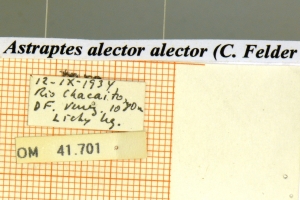 Astraptes alector alector (C. Felder
12-IX-1934
Rio Chacaito,
DF. Venez.
Lichy leg.
OM 41.701